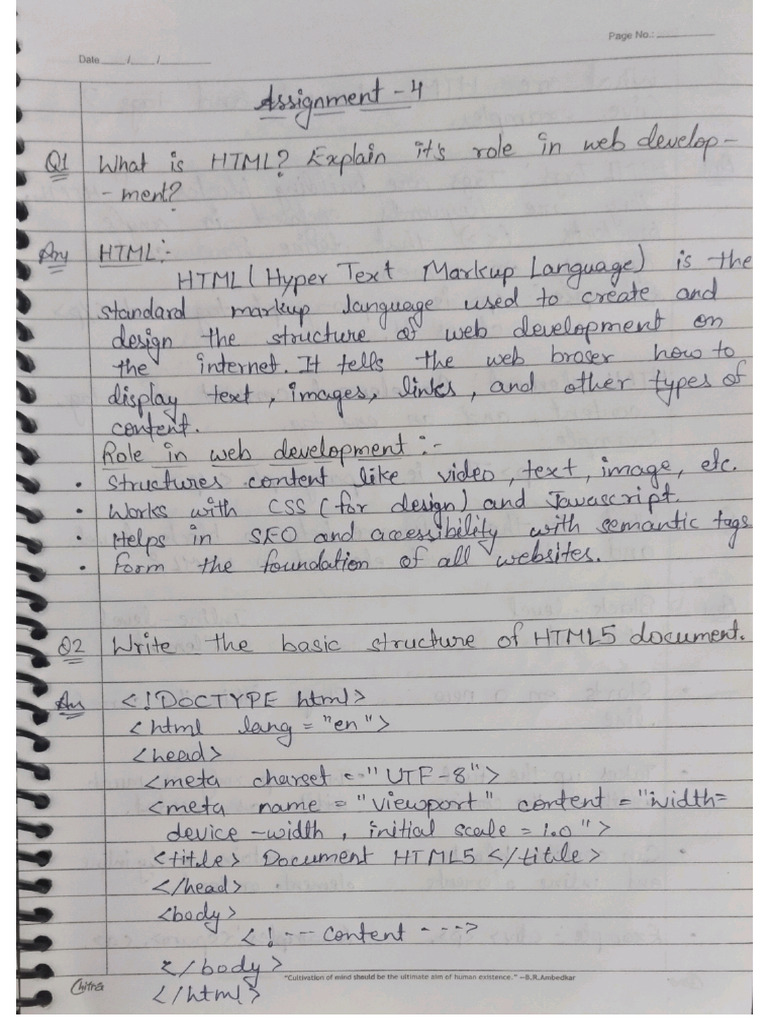 Page No.:
Date / /
Assignment - 4
Q1 What is HTML? Explain it's role in web develop-
- ment?
Ans HTML :-
HTML (Hyper Text Markup Language) is the
standard markup language used to create and
design the structure of web development on
the internet. It tells the web broser how to
display text, images, links, and other types of
content.
Role in web development :-
• Structures content like video, text, image, etc.
• Works with CSS (for design) and Javascript.
• Helps in SEO and accessibility with semantic tags
• Form the foundation of all websites.
Q2 Write the basic structure of HTML5 document.
Ans <!DOCTYPE html>
<html lang = "en">
<head>
<meta charset = "UTF-8">
<meta name = "viewport" content = "width=
device-width, initial scale = 1.0">
<title> Document HTML5 </title>
</head>
<body>
<!--- content --->
</body>
"Cultivation of mind should be the ultimate aim of human existence." –B.R.Ambedkar
Chitra
</html>